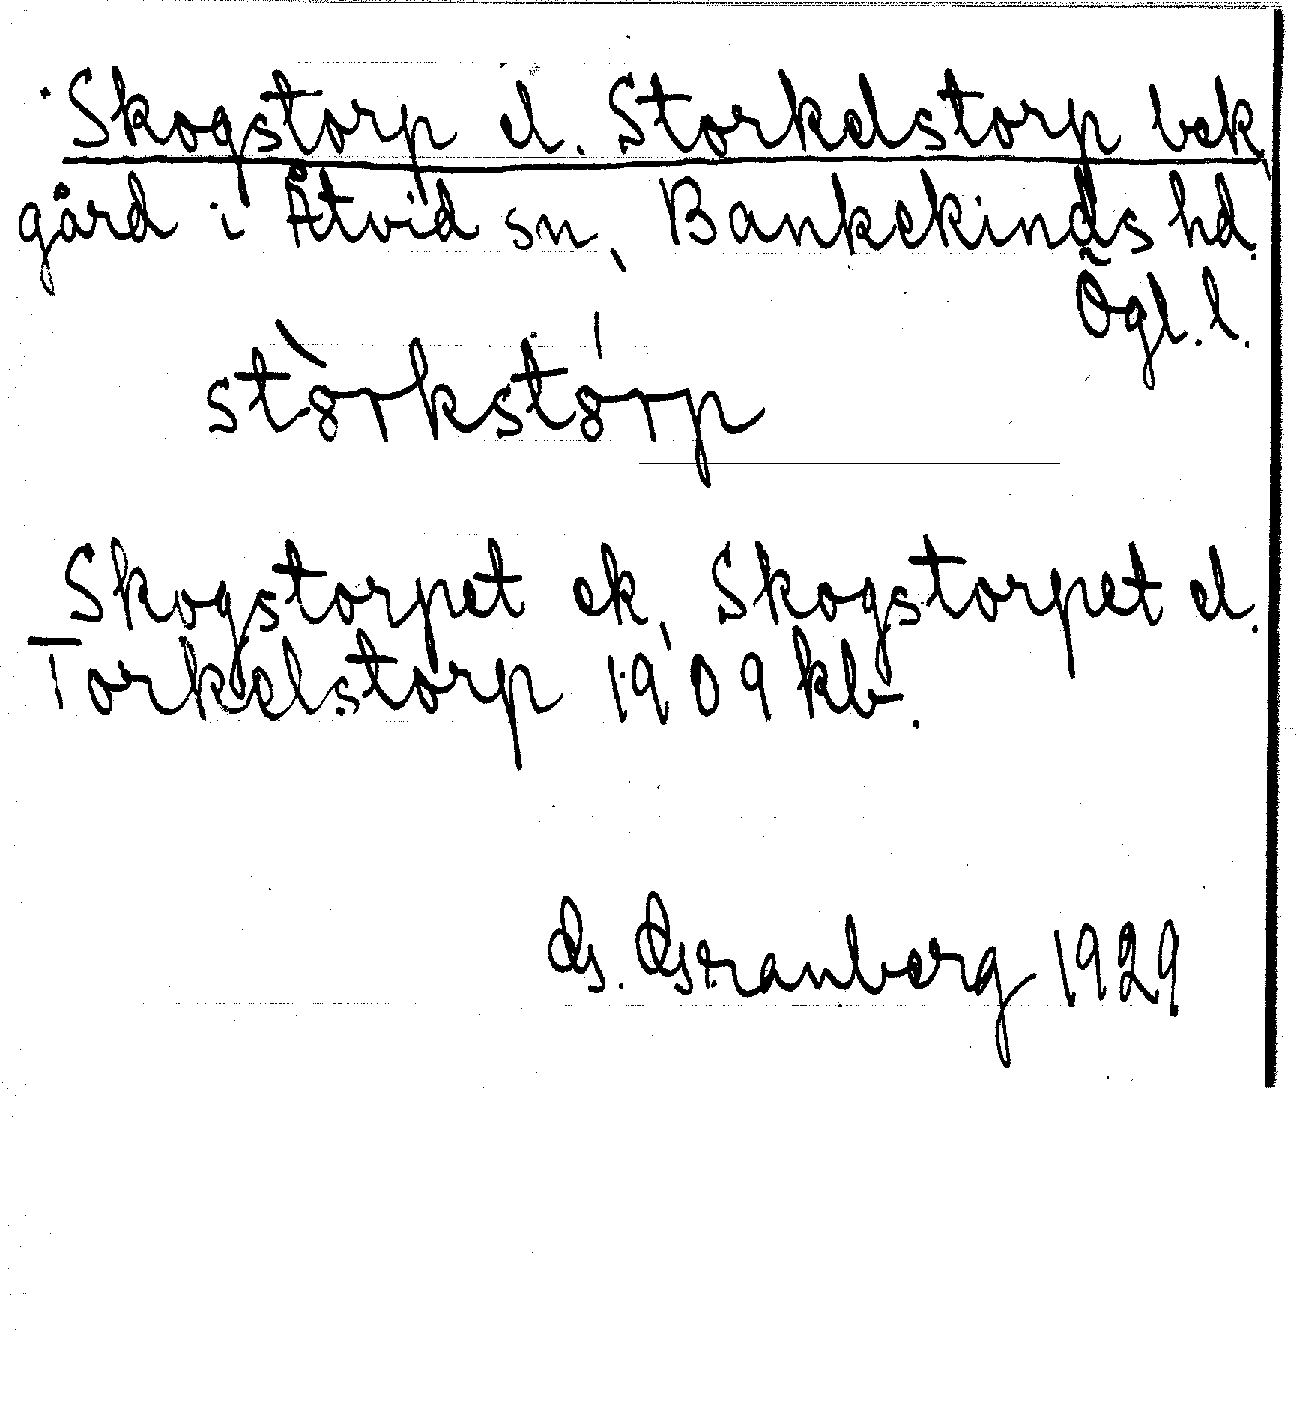 Skogstorp el. Storkelstorp bek,
gård i Åtvid sn, Bankekinds hd.
Ögl. l.
stò̀rkstó̀rp
Skogstorpet ek, Skogstorpet el.
Torkelstorp 1909 kb.
G. Granberg 1929